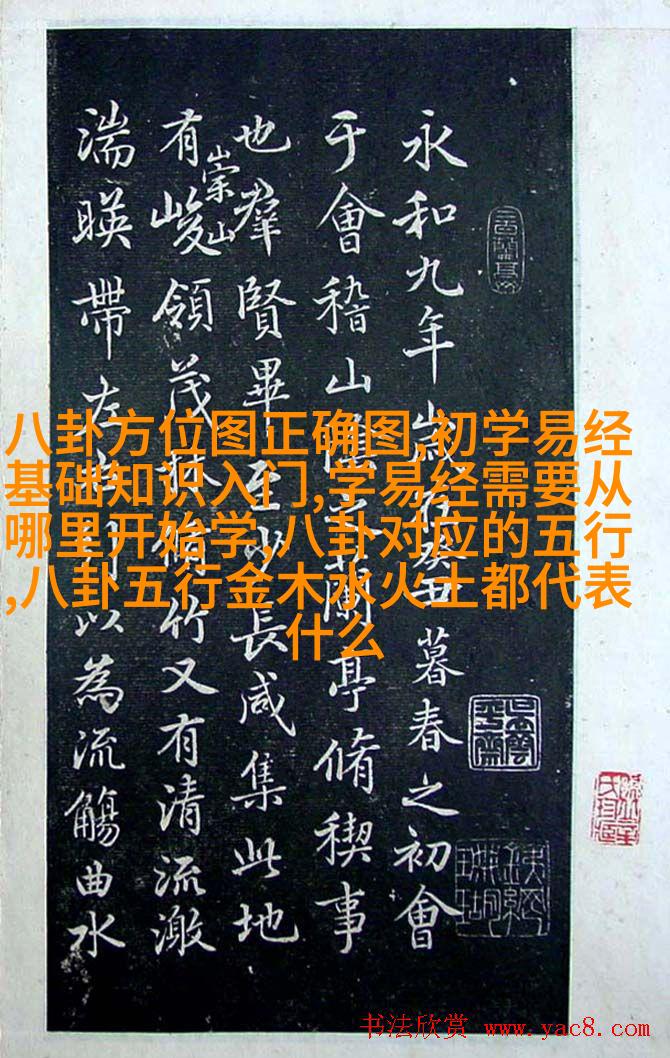 永和九年歲在癸丑暮春之初會
于會稽山陰之蘭亭脩稧事
也羣賢畢至少長咸集此地
有崇山峻領茂林脩竹又有清流激
湍暎帶左右引以為流觴曲水
八卦方位图正确图,初学易经
基础知识入门,学易经需要从
哪里开始学,八卦对应的五行
,八卦五行金木水火土都代表
什么
书法欣赏 www.yac8.com